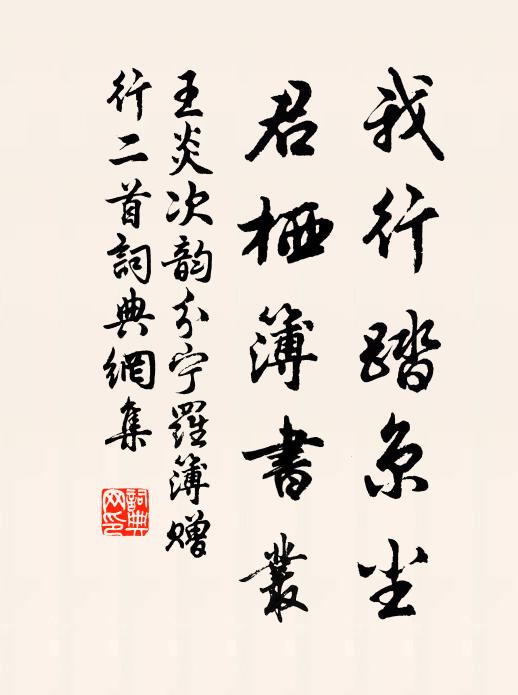 我行踏京尘
君栖簿書叢
王炎次韵分宁羅簿贈
行二首詞典網集
詞典
网印